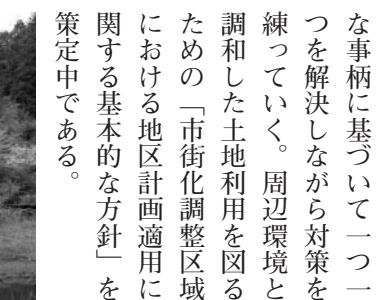 な事柄に基づいて一つ一
つを解決しながら対策を
練っていく。周辺環境と
調和した土地利用を図る
ための「市街化調整区域
における地区計画適用に
関する基本的な方針」を
策定中である。